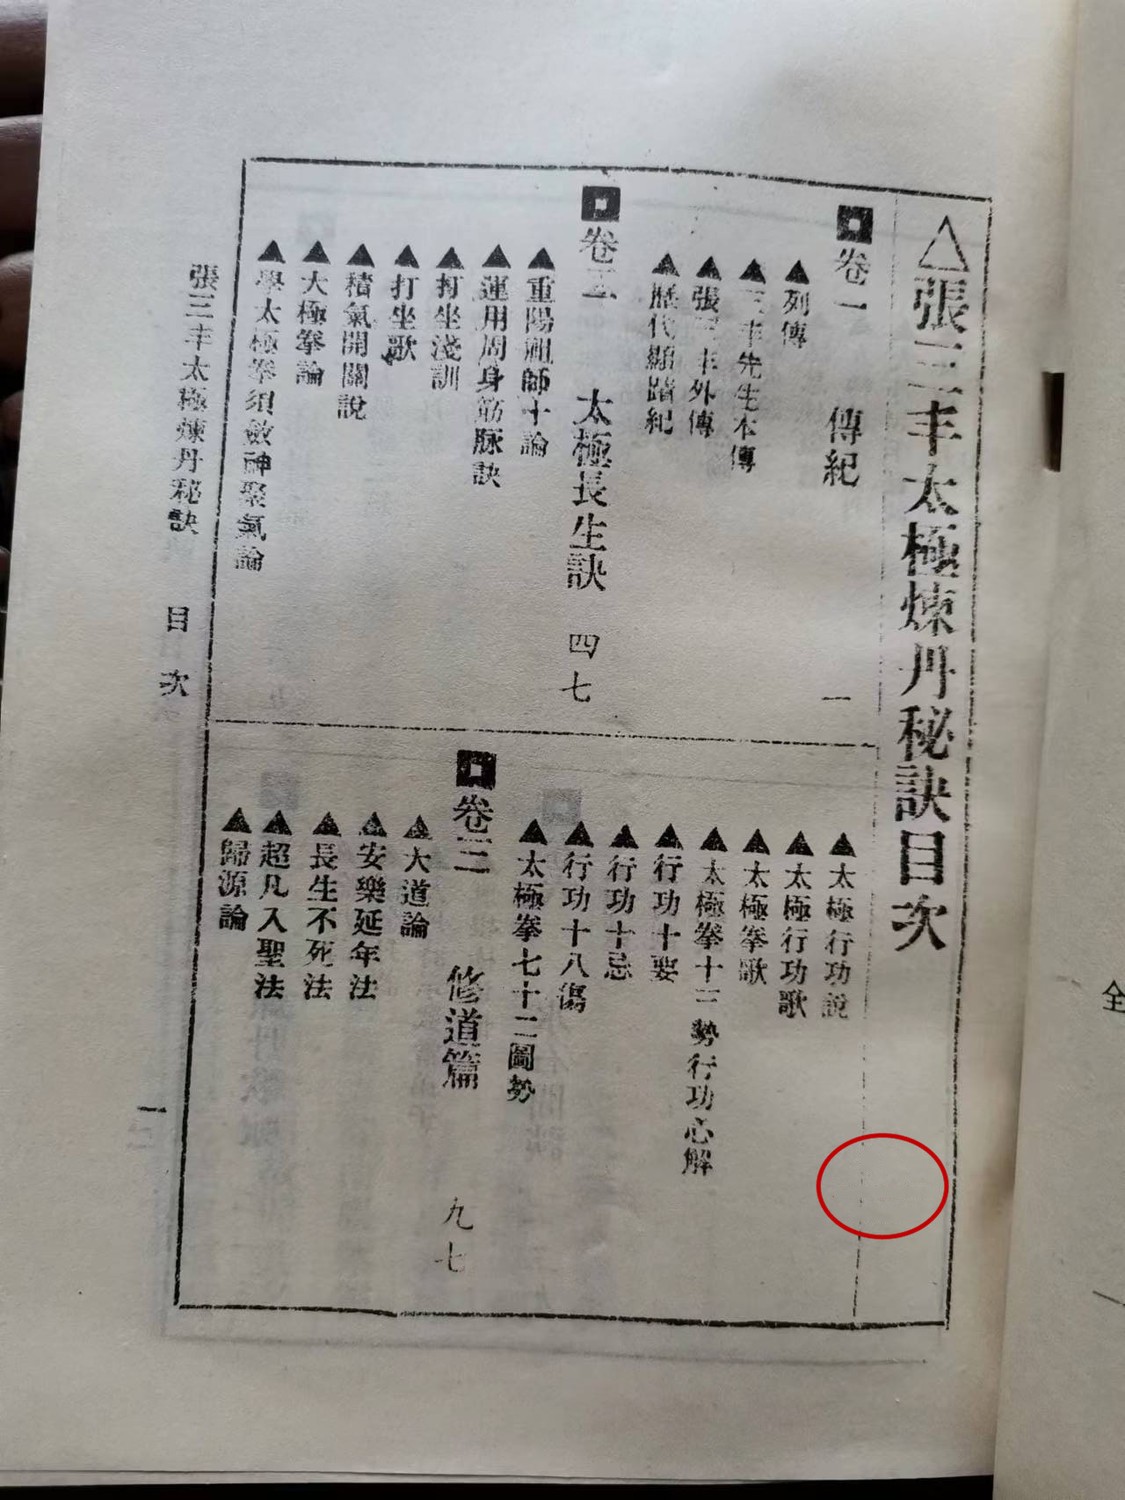 △張三丰太極煉丹秘訣目次
卷一　傳紀　一
▲列傳
▲三丰先生本傳
▲張三丰外傳
▲歷代顯蹟紀
卷二　太極長生訣　四七
▲重陽祖師十論
▲運用周身筋脈訣
▲打坐淺訓
▲打坐歌
▲積氣開關說
▲大極拳論
▲學太極拳須斂神聚氣論
▲太極行功說
▲太極行功歌
▲太極拳歌
▲太極拳十三勢行功心解
▲行功十要
▲行功十忌
▲行功十八傷
▲太極拳七十二圖勢
卷三　修道篇　九七
▲大道論
▲安樂延年法
▲長生不死法
▲超凡入聖法
▲歸源論
張三丰太極煉丹秘訣　目次
一
全